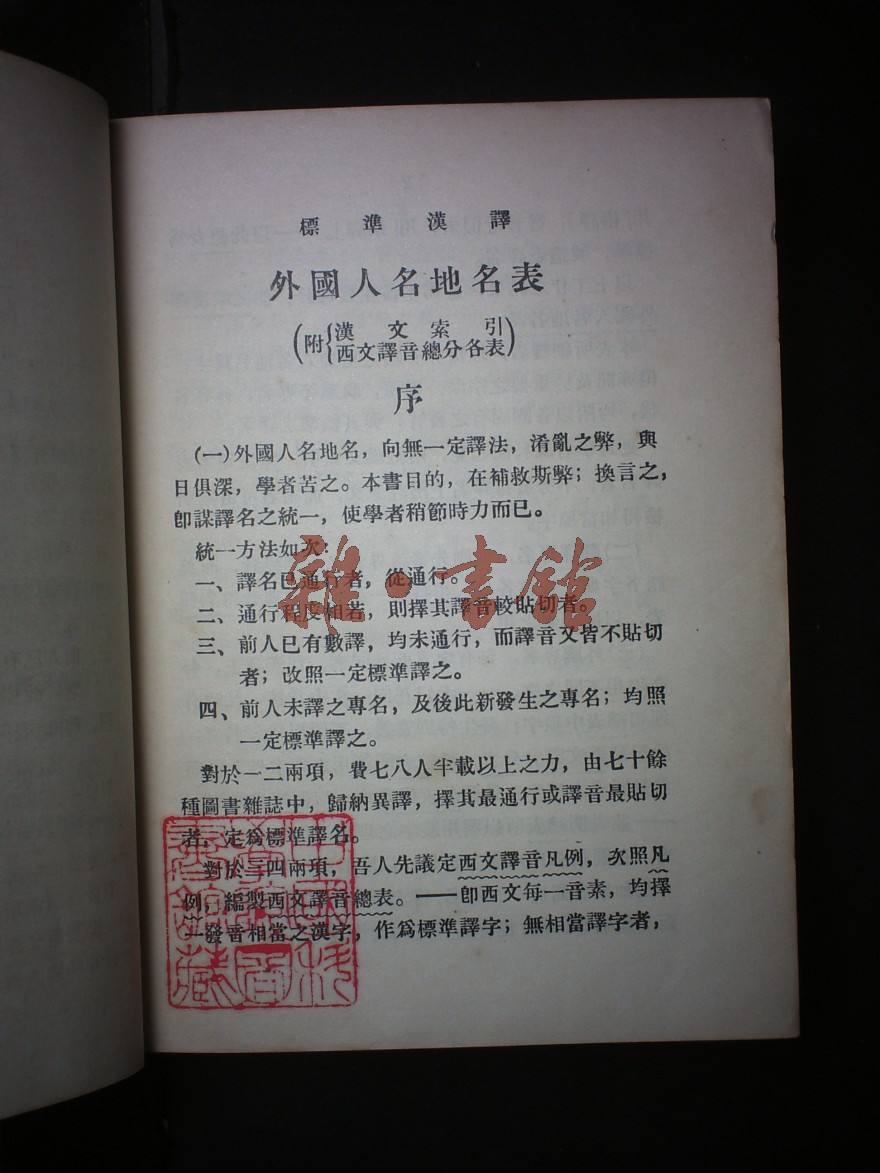 標準漢譯
外國人名地名表
(附{漢文索引
西文譯音總分各表)
序
(一)外國人名地名，向無一定譯法，淆亂之弊，與
日俱深，學者苦之。本書目的，在補救斯弊；換言之，
卽謀譯名之統一，使學者稍節時力而已。
統一方法如次：
一、譯名已通行者，從通行。
二、通行程度相若，則擇其譯音較貼切者。
三、前人已有數譯，均未通行，而譯音又皆不貼切
者；改照一定標準譯之。
四、前人未譯之專名，及後此新發生之專名；均照
一定標準譯之。
對於一二兩項，費七八人半載以上之力，由七十餘
種圖書雜誌中，歸納異譯，擇其最通行或譯音最貼切
者，定爲標準譯名。
對於三四兩項，吾人先議定西文譯音凡例，次照凡
例，編製西文譯音總表。——卽西文每一音素，均擇
一發音相當之漢字，作爲標準譯字；無相當譯字者，
雜·書館